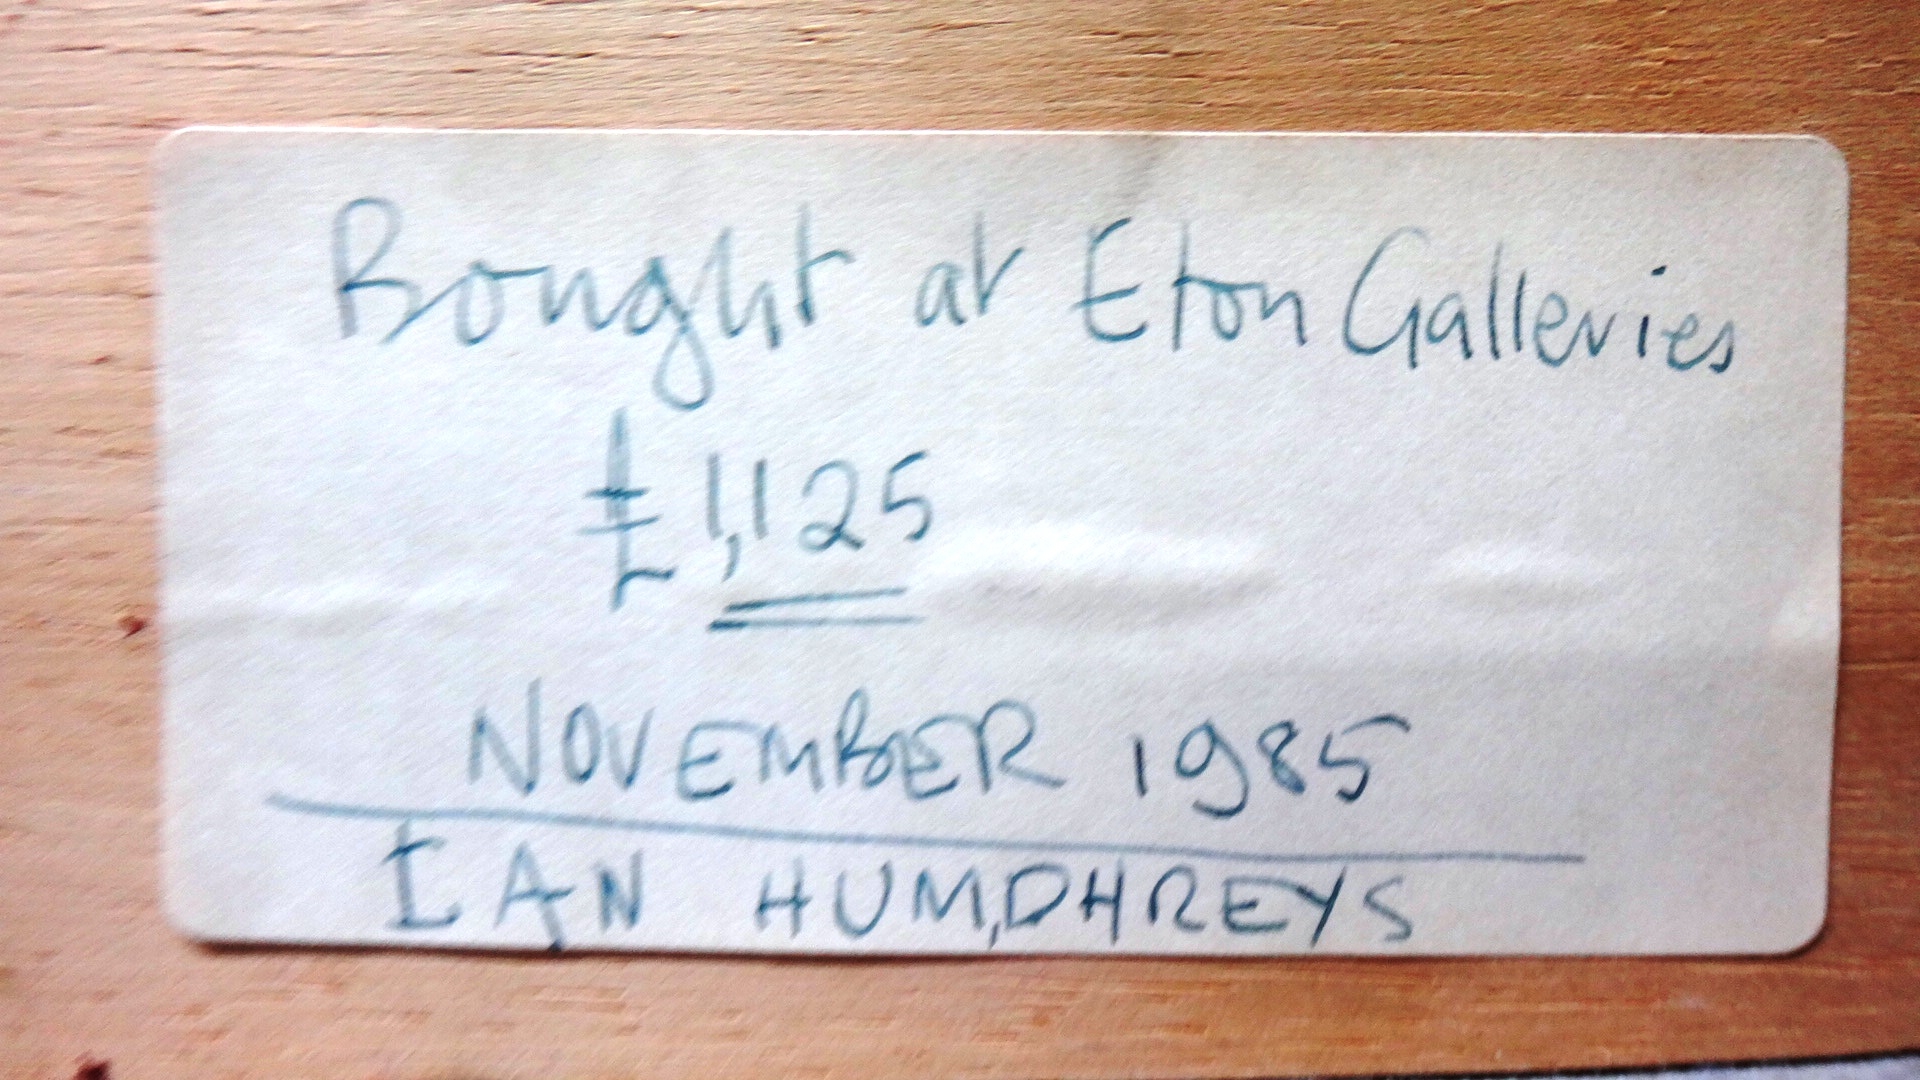 Bought at Eton Galleries
£1,125
NOVEMBER 1985
IAN HUMPHREYS